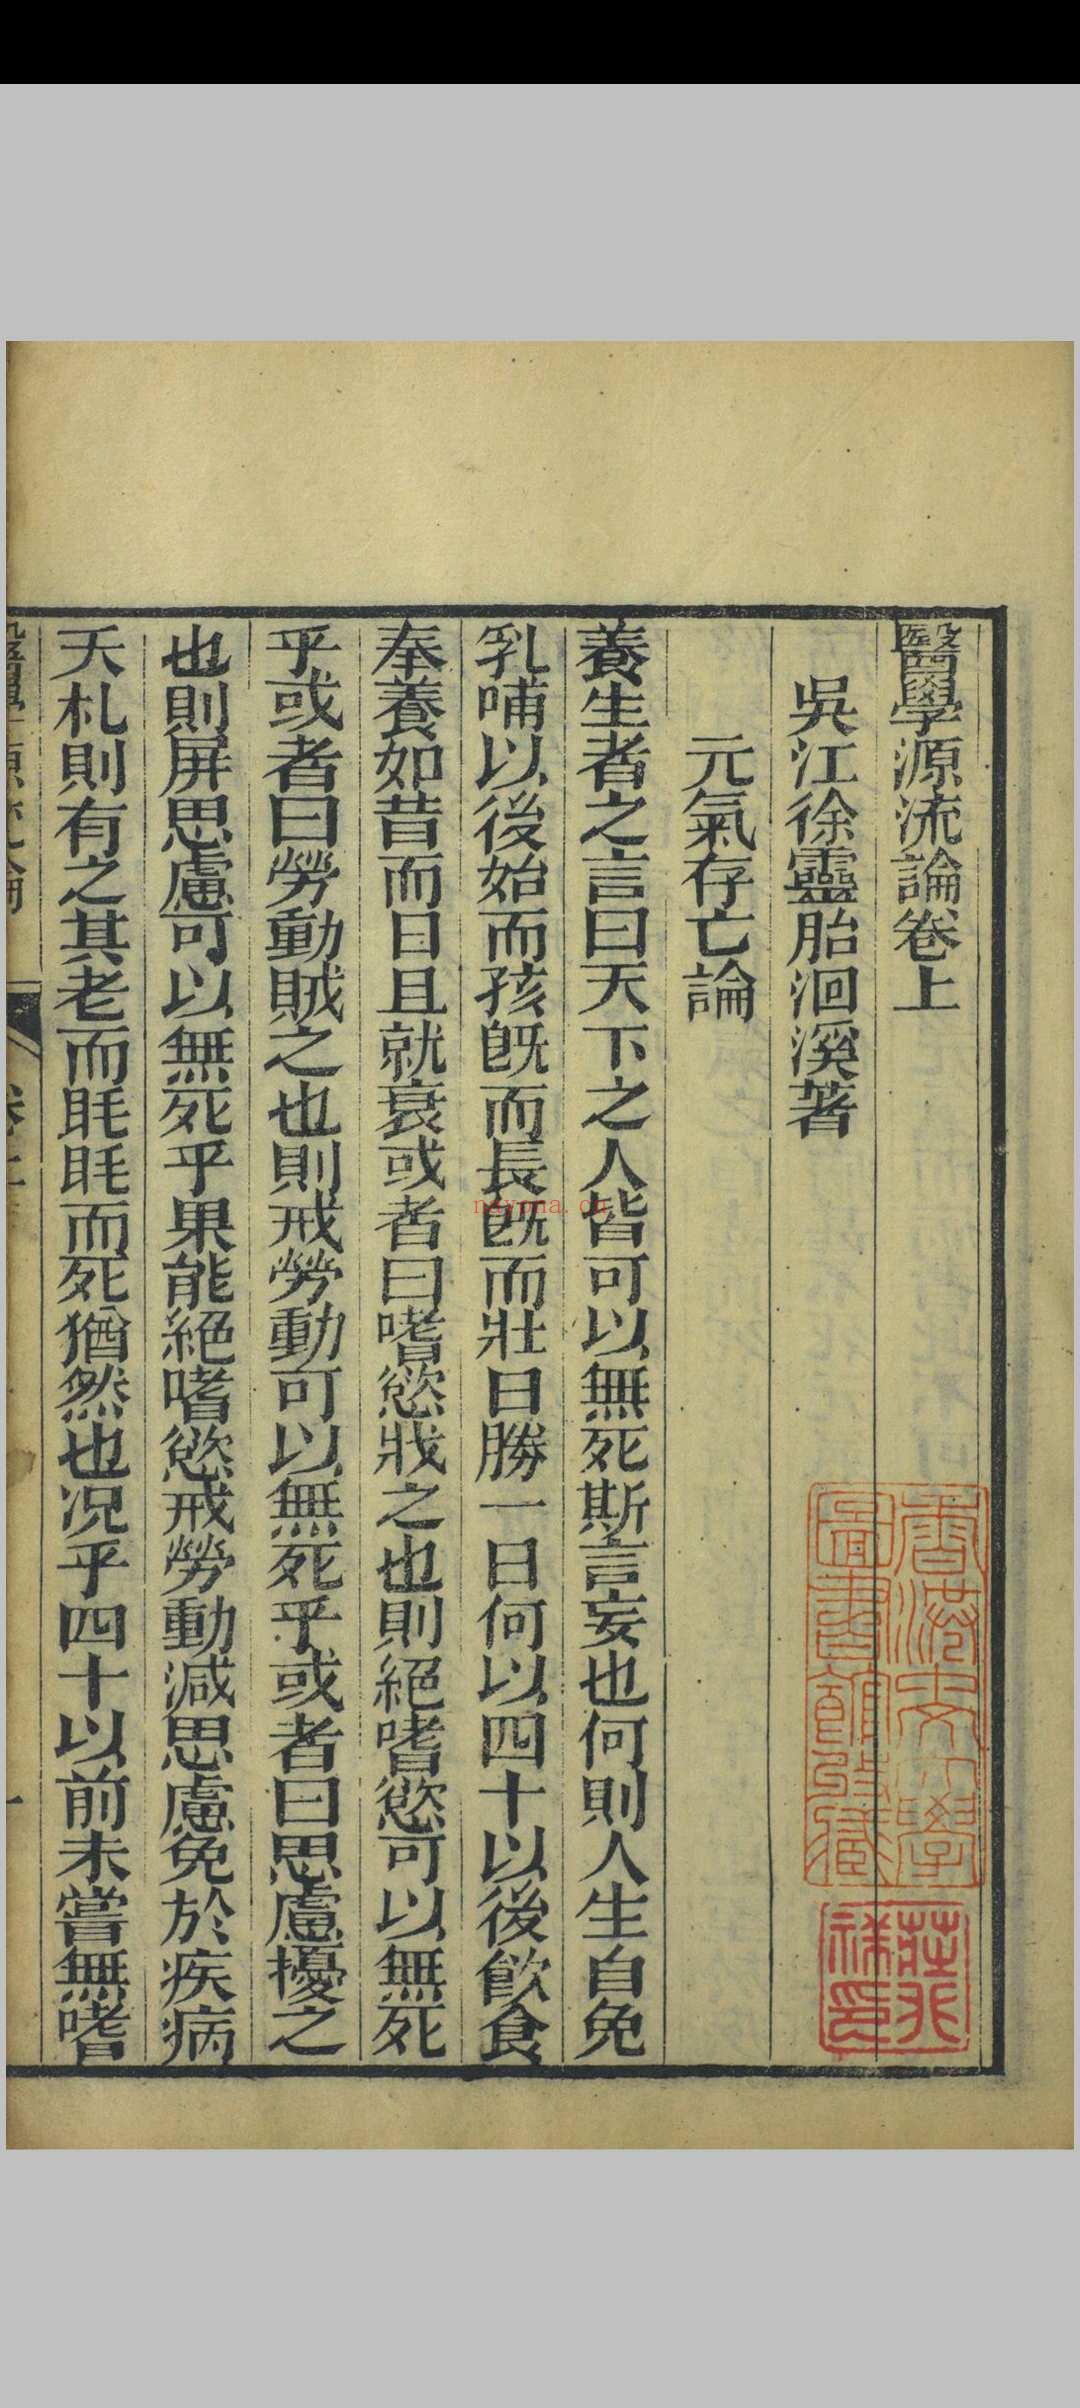 醫學源流論卷上
吳江徐靈胎洄溪著
元氣存亡論
養生者之言曰天下之人皆可以無死斯言妄也何則人生自免
乳哺以後始而孩旣而長旣而壯日勝一日何以四十以後飮食
奉養如昔而日且就衰或者曰嗜慾戕之也則絕嗜慾可以無死
乎或者曰勞動賊之也則戒勞動可以無死乎或者曰思慮擾之
也則屏思慮可以無死乎果能絕嗜慾戒勞動減思慮免於疾病
夭札則有之其老而眊眊而死猶然也况乎四十以前未嘗無嗜
香港大學
圖書館珍藏
nayona.cn